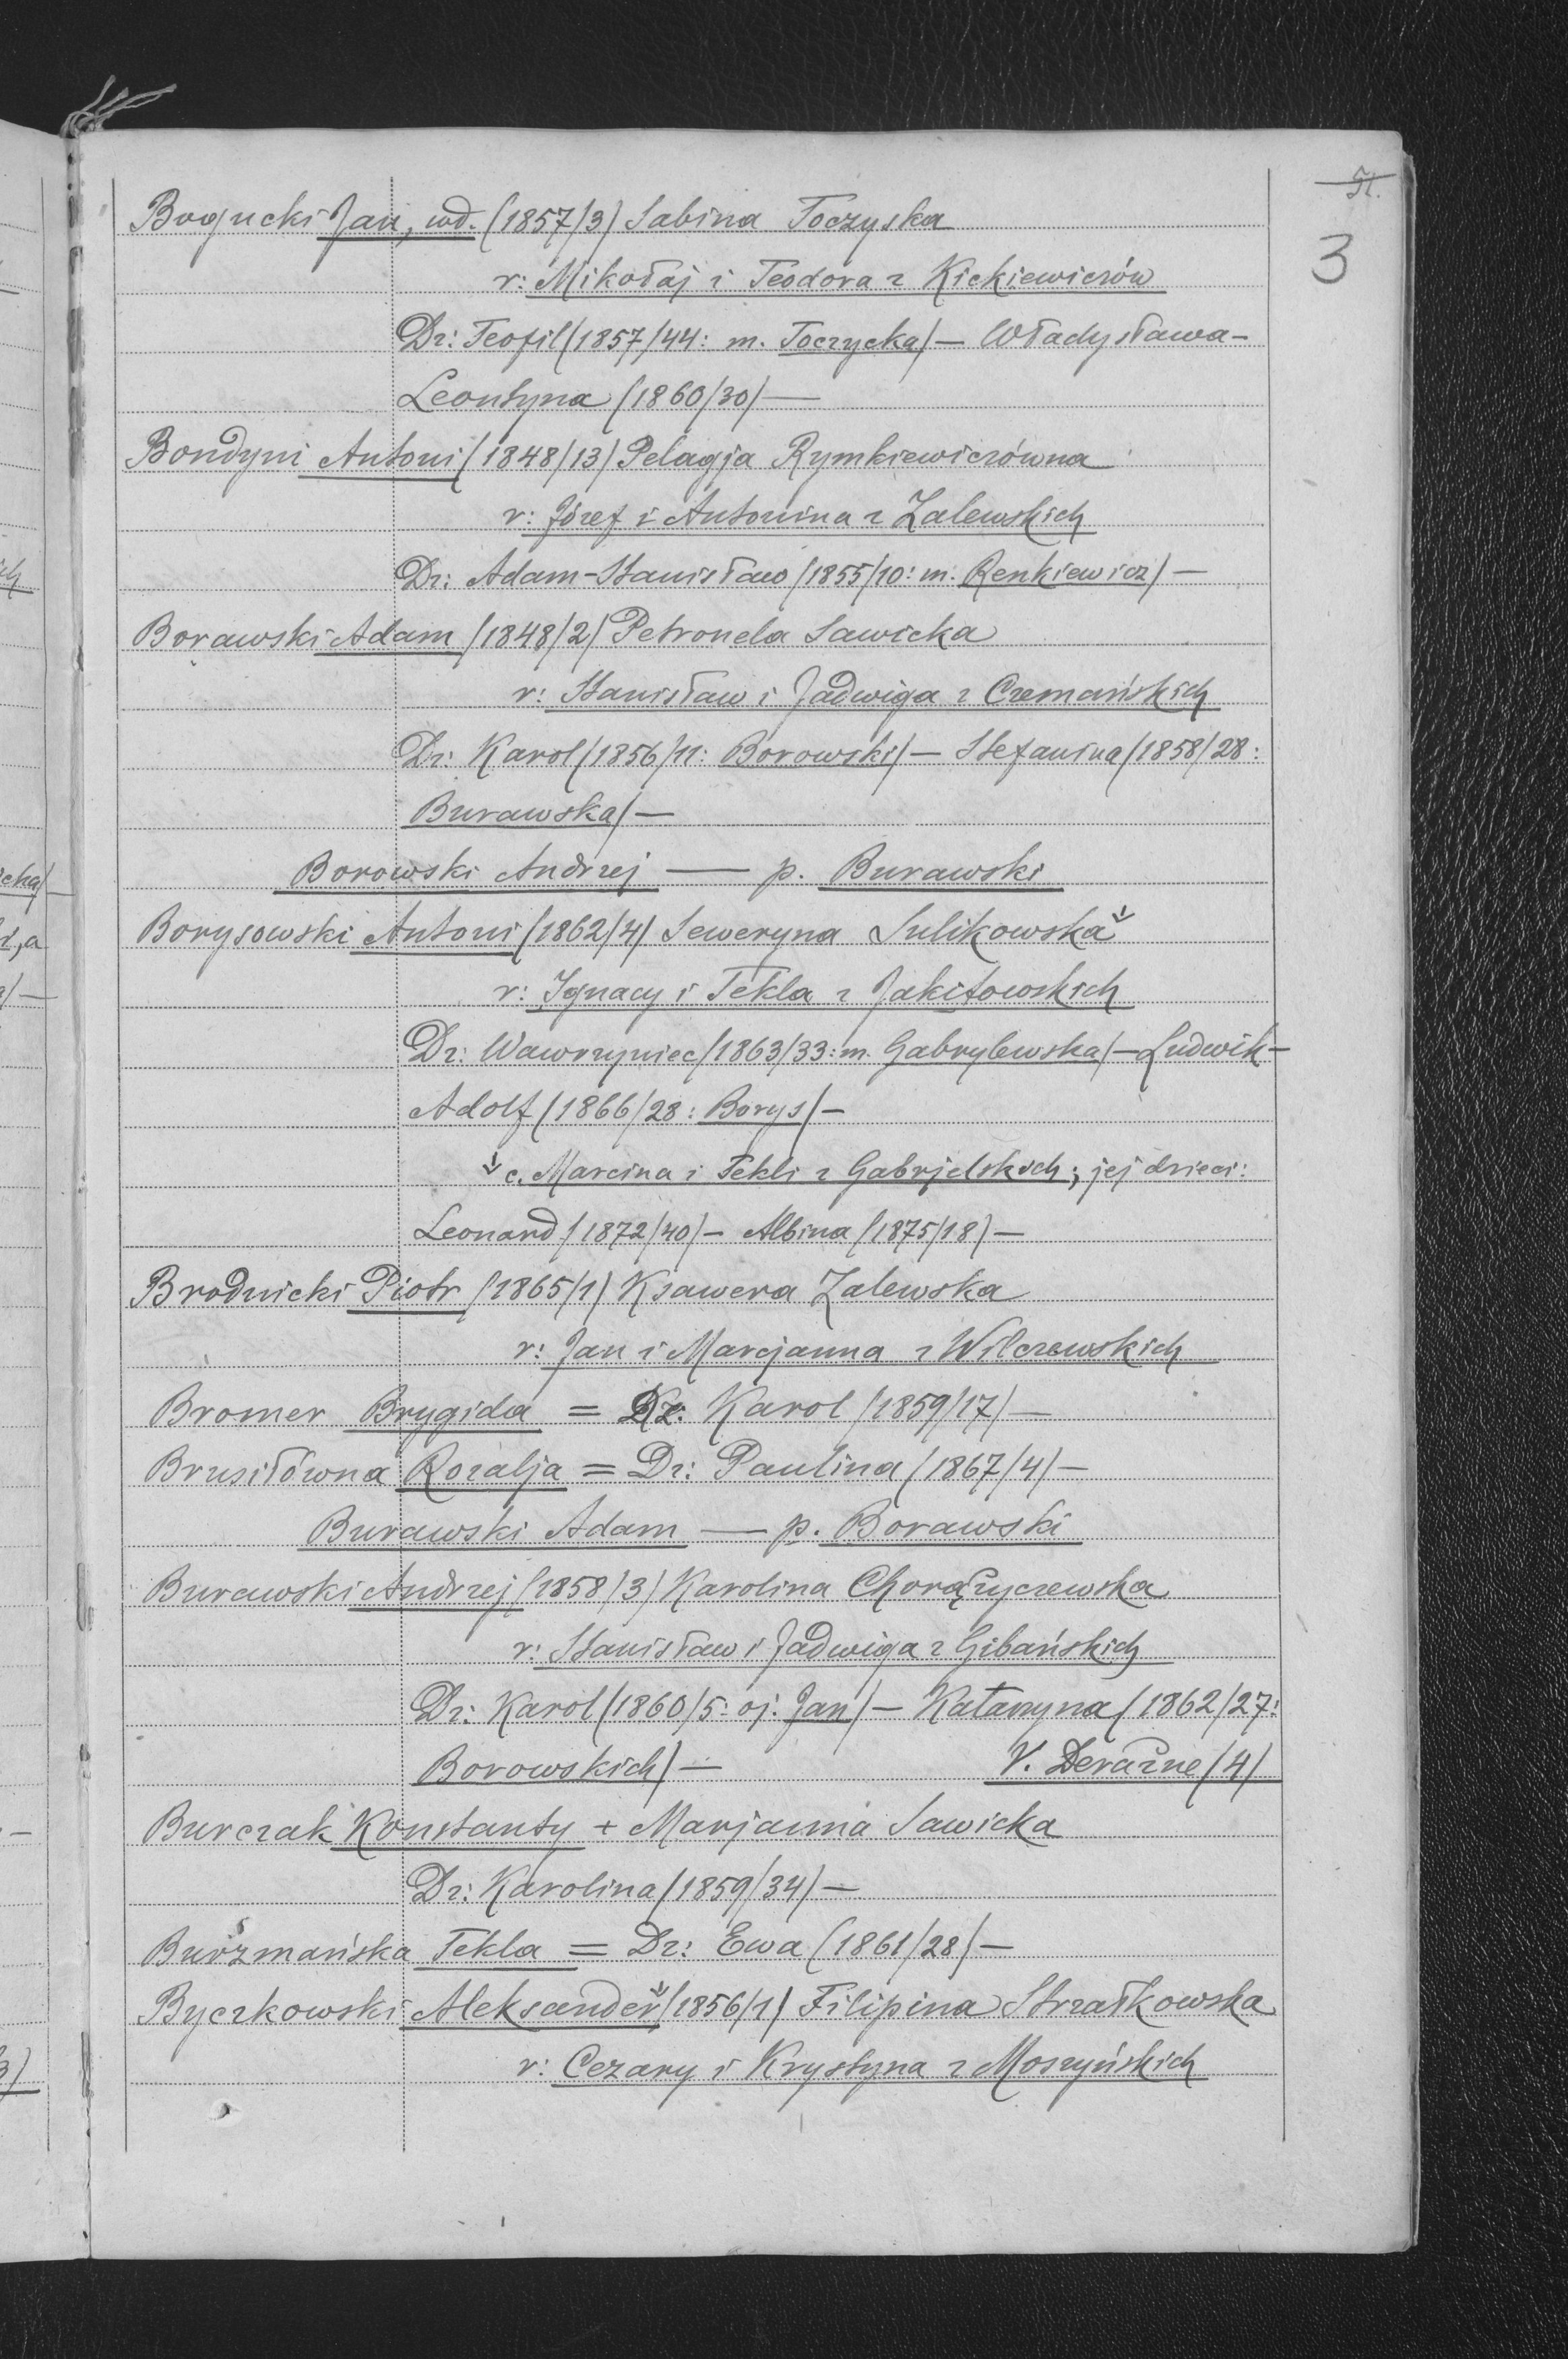 51.
3
Bogucki Jan, wd. (1857/3) Sabina Toczyska
r: Mikołaj i Teodora z Kickiewiczów
Dz: Teofil (1857/44: m. Toczycka) — Władysława-
Leontyna (1860/30) —
Bondyni Antoni (1848/13) Pelagja Rymkiewiczówna
r: Józef i Antonina z Zalewskich
Dz: Adam-Stanisław (1855/10: m. Renkiewicz) —
Borawski Adam (1848/2) Petronela Sawicka
r: Stanisław i Jadwiga z Czemańskich
Dz: Karol (1856/11: Borowski) — Stefanina (1858/28:
Burawska) —
Borowski Andrzej — p. Burawski
Borysowski Antoni (1862/4) Seweryna Sulikowska
r: Ignacy i Tekla z Jakitowskich
Dz: Wawrzyniec (1863/33: m. Gabrylewska) — Ludwik-
Adolf (1866/28: Borys) —
c. Marcina i Tekli z Gabrjelskich; jej dzieci:
Leonard (1872/40) — Albina (1875/18) —
Brodnicki Piotr (1865/1) Ksawera Zalewska
r: Jan i Marcjanna z Wilczewskich
Bromer Brygida = Dz: Karol (1859/17) —
Brusiłówna Rozalja = Dz: Paulina (1867/4) —
Burawski Adam — p. Borawski
Burawski Andrzej (1858/3) Karolina Chorążyczewska
r: Stanisław i Jadwiga z Gibańskich
Dz: Karol (1860/5: oj. Jan) — Katarzyna (1862/27:
Borowskich) — V. Derażne (4)
Burczak Konstanty + Marjanna Sawicka
Dz: Karolina (1859/34) —
Burzmańska Tekla = Dz: Ewa (1861/28) —
Byczkowski Aleksander (1856/1) Filipina Strzałkowska
r: Cezary i Krystyna z Moszyńskich